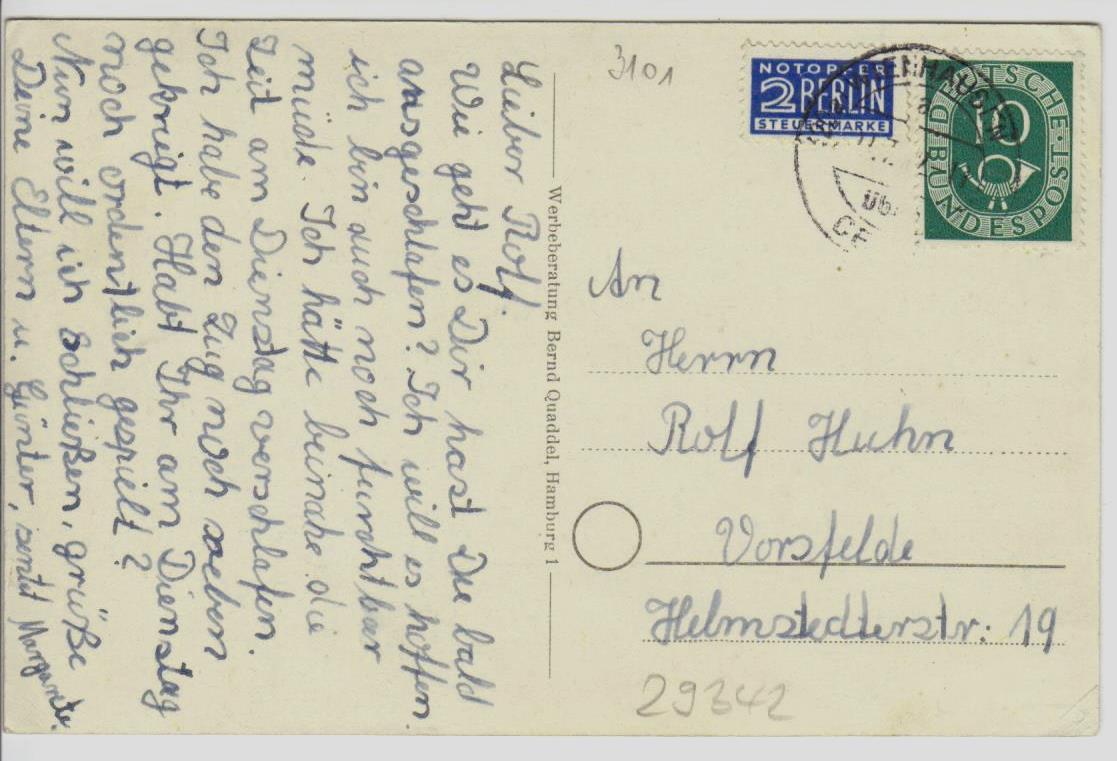 Lieber Rolf.
Wie geht es Dir hast Du bald
ausgeschlafen? Ich will es hoffen.
ich bin auch noch furchtbar
müde. Ich hätte beinahe die
Zeit am Dienstag verschlafen.
Ich habe den Zug noch soeben
gekriegt. Habt Ihr am Dienstag
noch ordentlich gespielt?
Nun will ich schließen, grüße
Deine Eltern u. Günter, sendet Margarete.
Werbeberatung Bernd Quaddel, Hamburg 1
3101
NOTOPFER
2 BERLIN
STEUERMARKE
DEUTSCHE BUNDESPOST
10
a
üb.
CE
An
Herrn
Rolf Huhn
Vorsfelde
Helmstedterstr: 19
29342